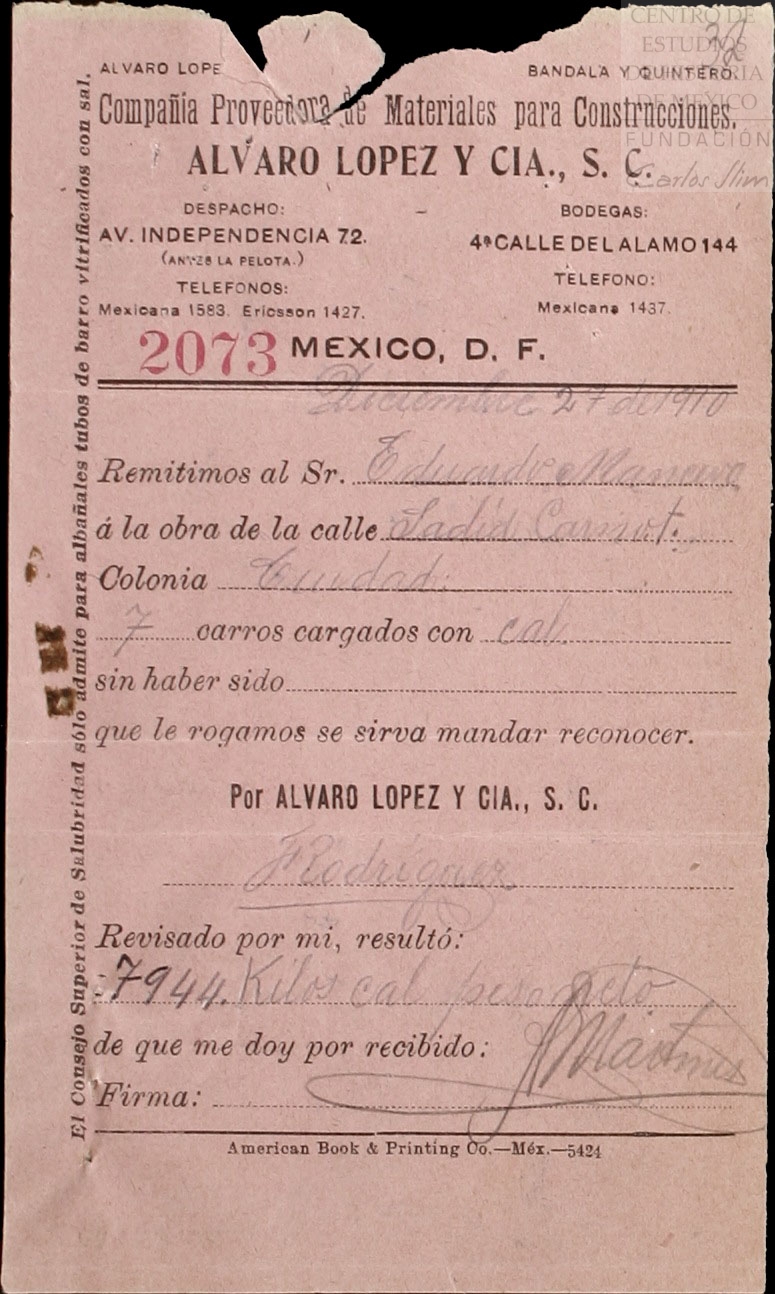 32
CENTRO DE
ESTUDIOS
DE HISTORIA
DE MEXICO
FUNDACIÓN
Carlos Slim
ALVARO LOPE
BANDALA Y QUINTERO.
Compañia Proveedora de Materiales para Construcciones.
ALVARO LOPEZ Y CIA., S. C.
DESPACHO:
AV. INDEPENDENCIA 72.
(ANTES LA PELOTA.)
TELEFONOS:
Mexicana 1583. Ericsson 1427.
BODEGAS:
4ª CALLE DEL ALAMO 144
TELEFONO:
Mexicana 1437.
2073 MEXICO, D. F.
Diciembre 27 de 1910
Remitimos al Sr. Eduardo
á la obra de la calle Sadi Carnot.
Colonia Ciudad.
7 carros cargados con cal.
sin haber sido
que le rogamos se sirva mandar reconocer.
Por ALVARO LOPEZ Y CIA., S. C.
F Rodríguez
Revisado por mi, resultó:
7944. Kilos cal peso neto
de que me doy por recibido:
Martinez
Firma:
American Book & Printing Co.—Méx.—5424
El Consejo Superior de Salubridad sólo admite para albañales tubos de barro vitrificados con sal.